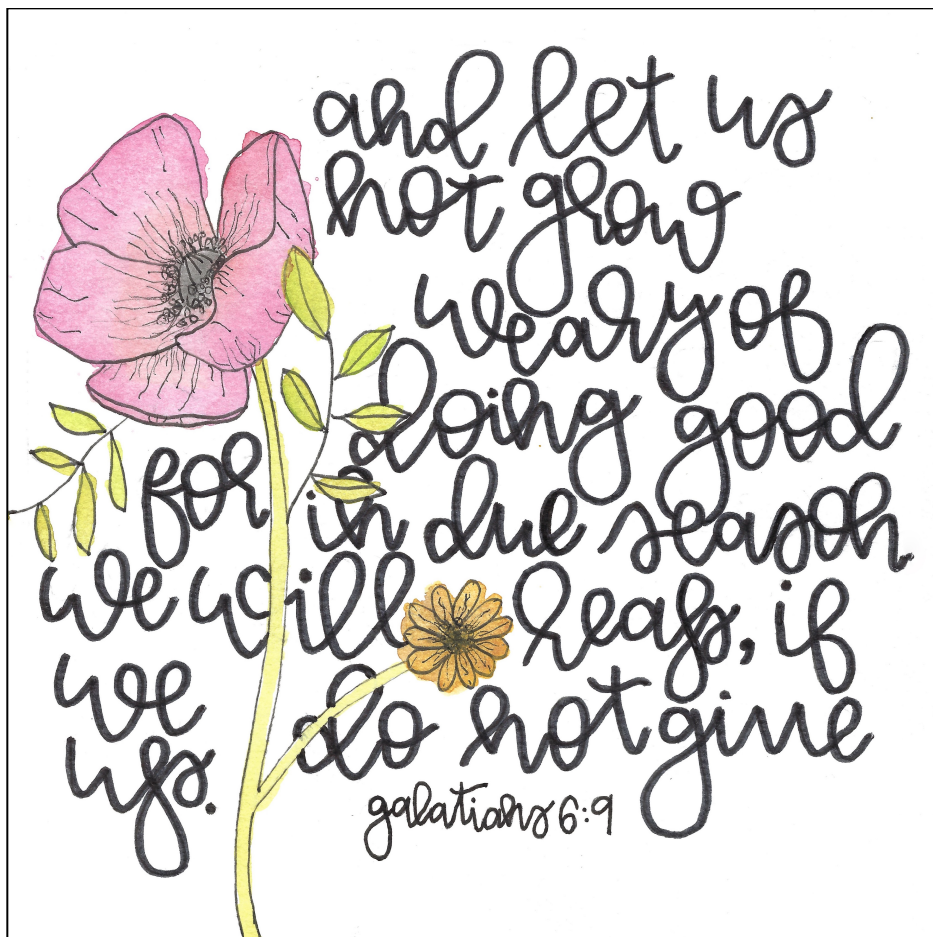 and let us
not grow
weary of
doing good
for in due season
we will reap, if
we do not give
up.
galatians 6:9